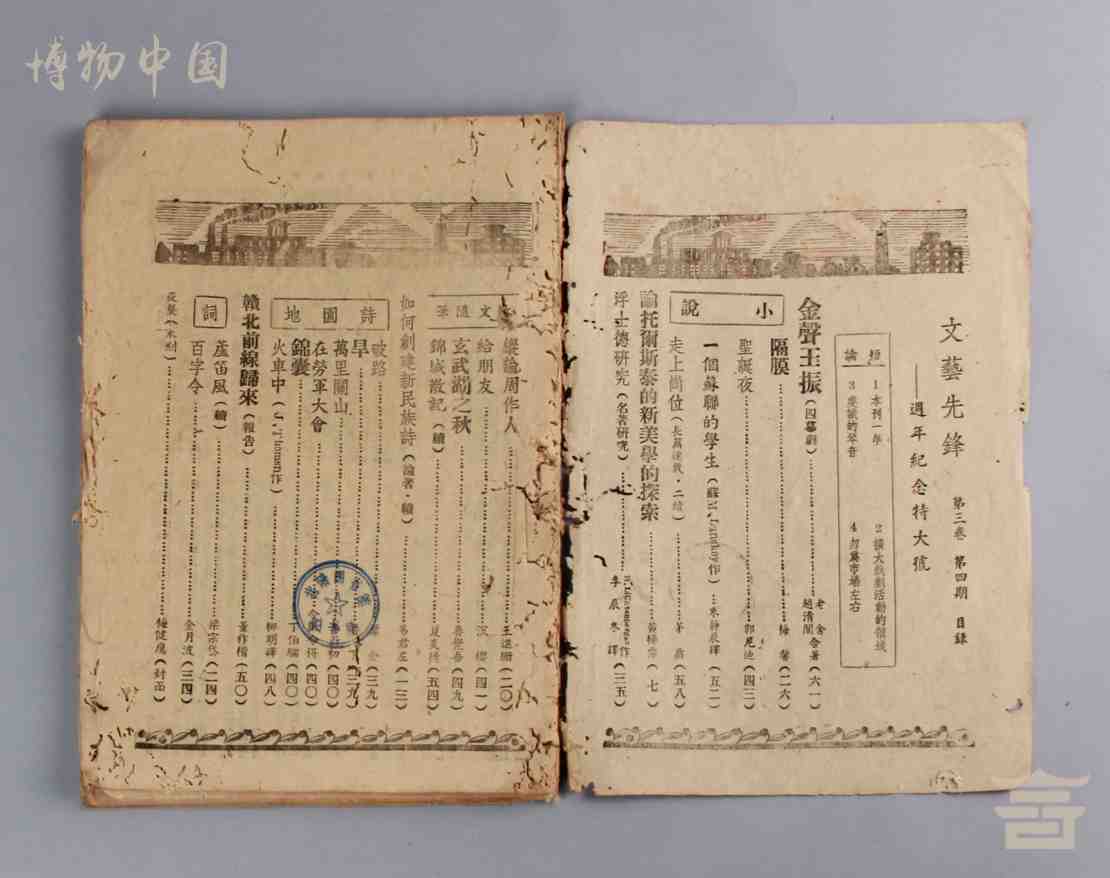 博物中国
文藝先鋒 第三卷 第四期 目錄
——週年紀念特大號
短論
1 本刊一年
2 擴大戲劇活動的領域
3 虔誠的琴音
4 勿為市場左右
金聲玉振(四幕劇)……老舍 趙清閣合著(六一)
小說
隔膜……梅馨(二六)
聖誕夜……郭尼迪(四三)
一個蘇聯的學生(蘇作)……譯(五二)
走上崗位(長篇連載·二續)……茅盾(五八)
論托爾斯泰的新美學的探索……(七)
浮士德研究(名著研究)……作 李辰冬譯(三五)
文隨筆
縱論周作人……王進珊(二〇)
給朋友……沉櫻(四一)
玄武湖之秋……(四九)
錦城散記(續)……(五四)
如何創建新民族詩(論著·續)……易君左(一三)
詩園地
破路……(三九)
旱……(三九)
萬里關山……(四〇)
在勞軍大會……(四〇)
錦囊……丁伯騮(四〇)
火車中(作)……柳明譯(四八)
贛北前線歸來(報告)……董作楷(五〇)
詞
蘆笛風(續)……梁宗岱(二四)
百字令……金月波(三四)
(木刻)……梅健鷹(封面)